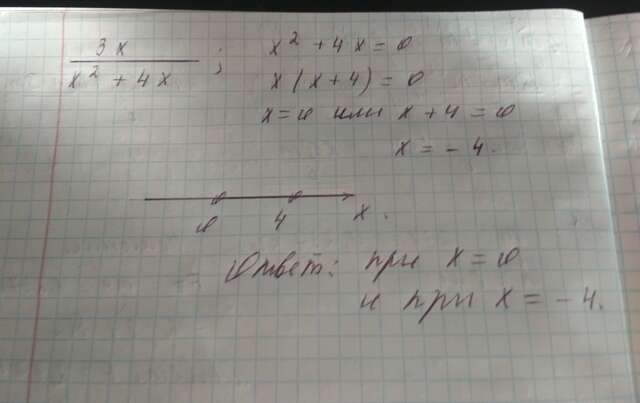 3x / x² + 4x ; x² + 4x = 0
x(x+4) = 0
x = 0 или x + 4 = 0
x = -4.
0 4 x.
Ответ: при x = 0
и при x = -4.